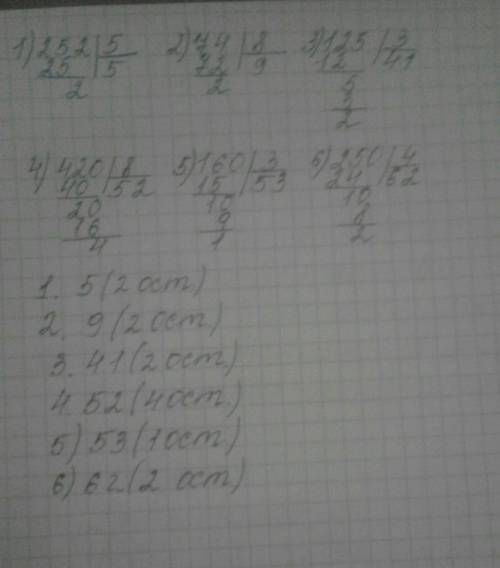 1) 252 | 5 2) 74 | 8 3) 125 | 3
25 | 5 72 | 9 12 | 41
2 2 5
3
2
4) 420 | 8 5) 160 | 3 6) 250 | 4
40 | 52 15 | 53 24 | 62
20 10 10
16 9 8
4 1 2
1. 5 (2 ост.)
2. 9 (2 ост.)
3. 41 (2 ост.)
4. 52 (4 ост.)
5) 53 (1 ост.)
6) 62 (2 ост.)